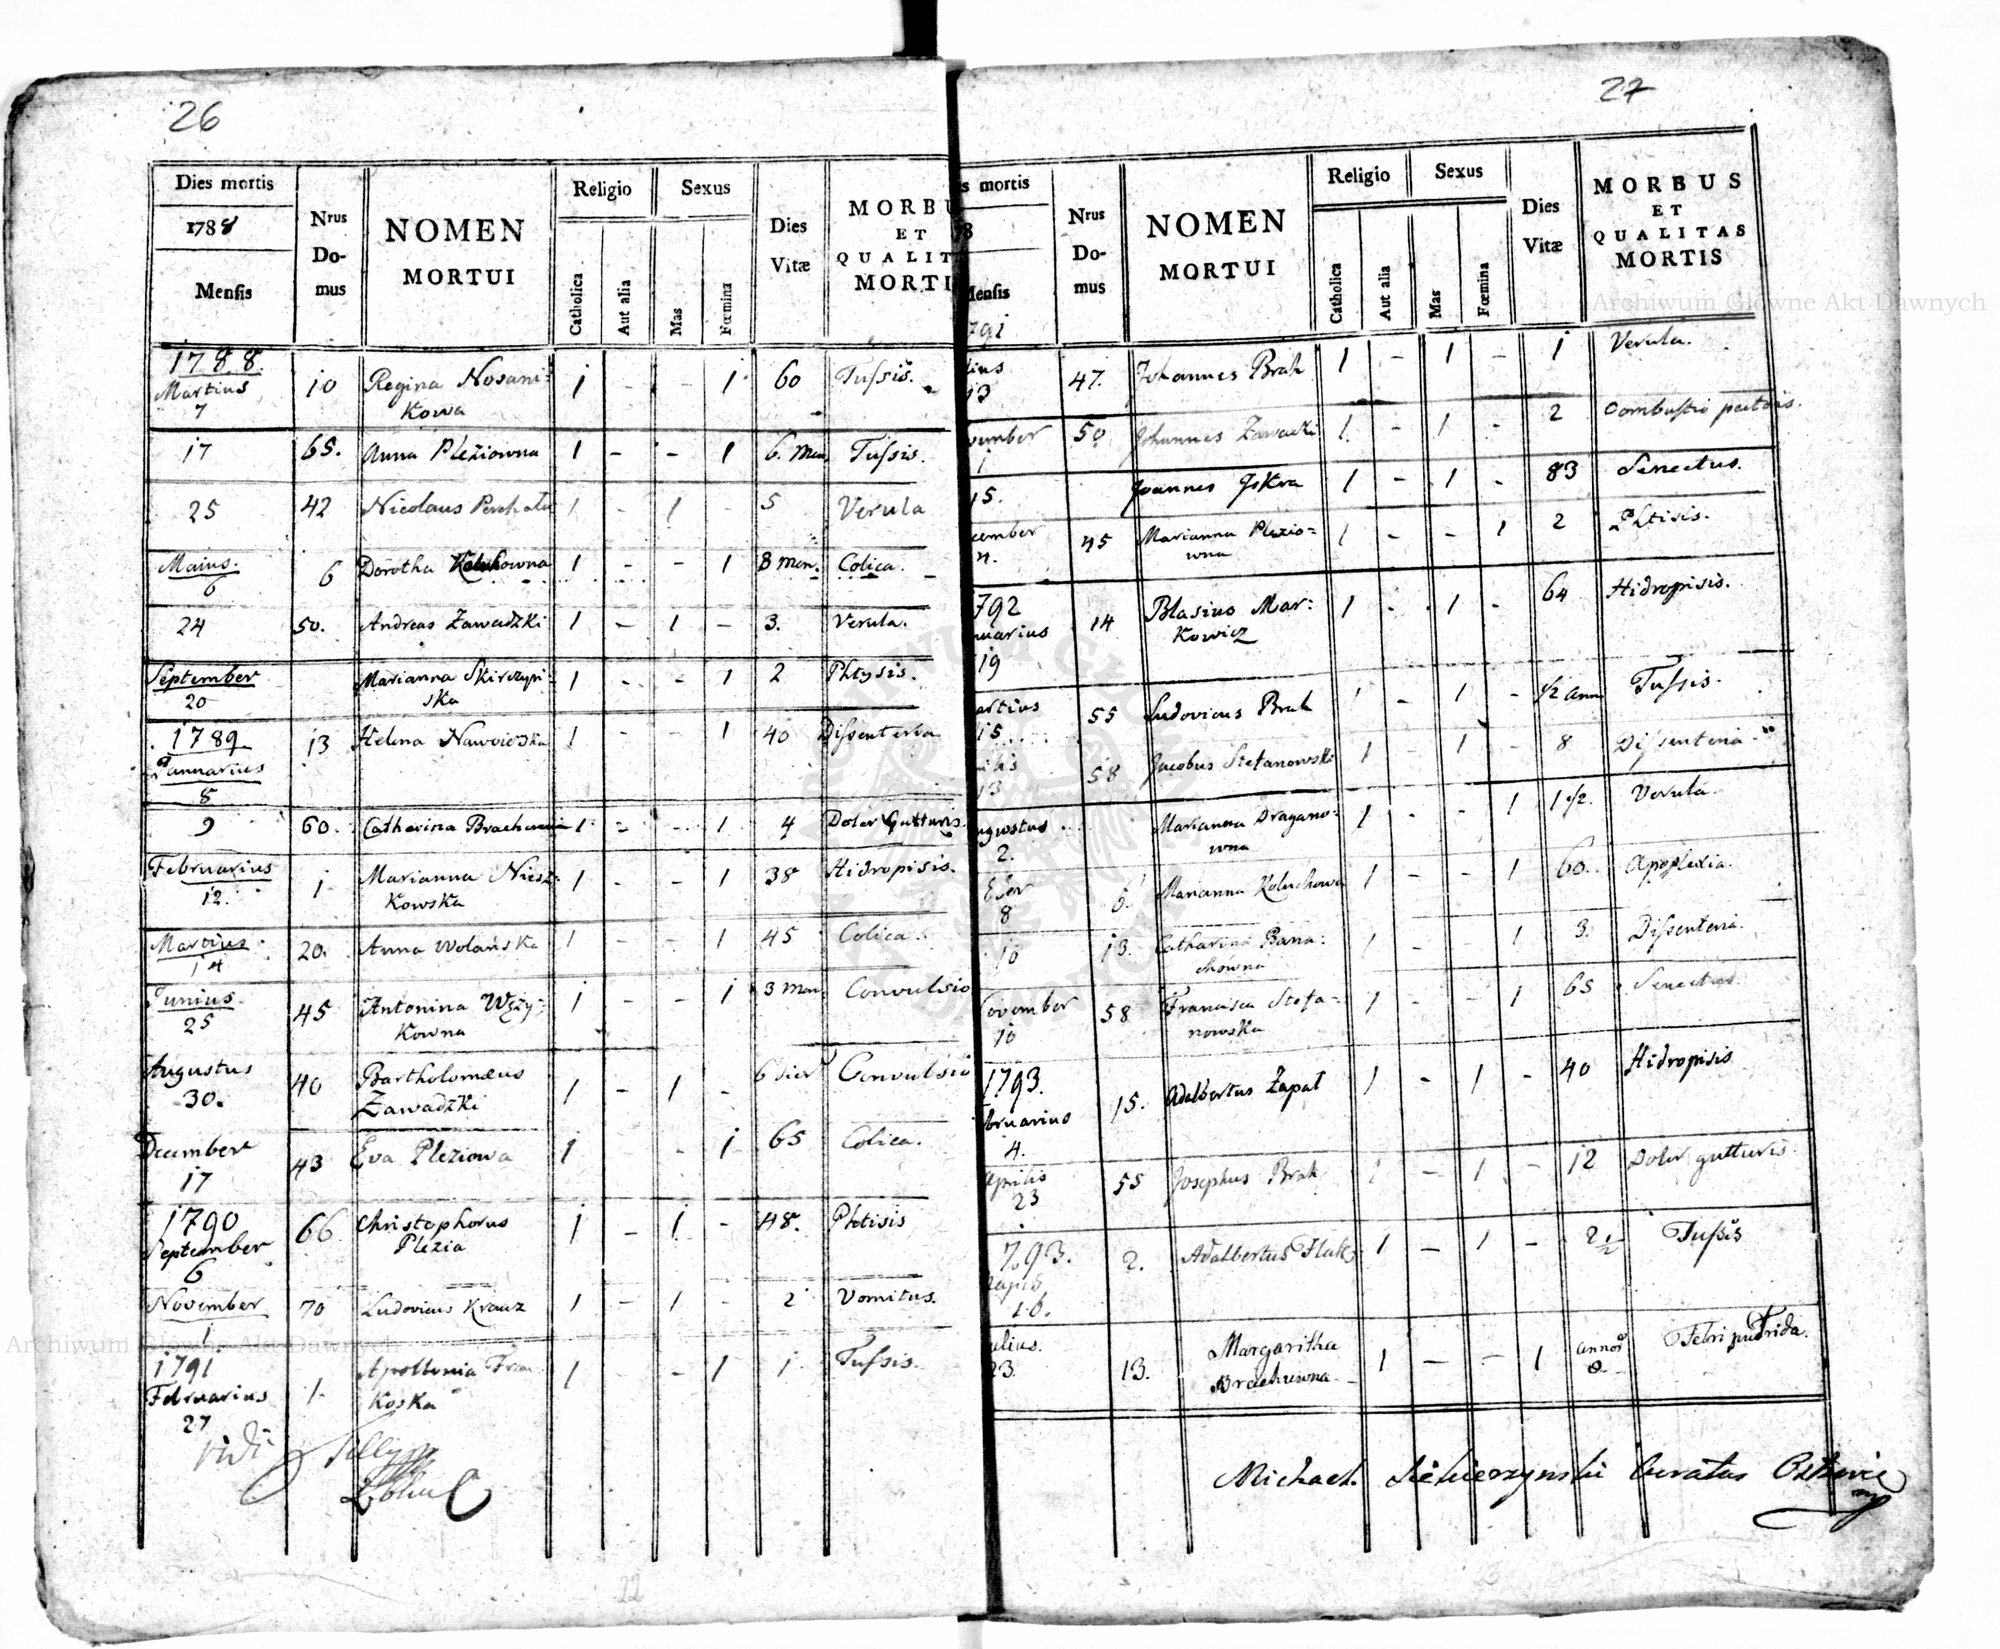 26
Dies mortis
1788
Mensis
Nrus Domus
NOMEN MORTUI
Religio
Catholica
Aut alia
Sexus
Mas
Fœmina
Dies Vitæ
MORBU
ET
QUALIT
MORTI
1788.
Martius 7 10 Regina Nosani: 1 - - 1 60 Tussis.
Kowa
17 65. Anna Pleziowna 1 - - 1 6. Men. Tussis.
25 42 Nicolaus 1 - 1 - 5 Verula
Maius. 6 6 Dorotha 1 - - 1 8 Men. Colica.
24 50. Andreas Zawadzki 1 - 1 - 3. Verula.
September 20 Marianna 1 - - 1 2 Phtysis.
ska
1789
Januarius 8 13 Helena 1 - - 1 40
9 60. Catharina 1 - - 1 4 Dolor Gutturis.
Februarius 12. 1 Marianna Niesz: 1 - - 1 38 Hidropisis.
Kowska
Martius 14 20. Anna Wolańska 1 - - 1 45 Colica.
Junius. 25 45 Antonina Węży: 1 - - 1 3 Men. Convulsio
Kowna
Augustus 30. 40 Bartholomæus 1 - 1 - 6 Convulsio
Zawadzki
December 17 43 Eva Pleziowa 1 - 1 65 Colica.
1790
September 6 66 Christophorus 1 - 1 - 48. Phtisis
Plezia
November 1 70 Ludovicus Krauz 1 - 1 - 2 Vomitus.
1791
Februarius 27 1. Apollonia 1 - - 1 1. Tussis.
Koska
vidi
27
s mortis
78
Mensis
Nrus Domus
NOMEN MORTUI
Religio
Catholica
Aut alia
Sexus
Mas
Fœmina
Dies Vitæ
MORBUS
ET
QUALITAS
MORTIS
791
lius 13 47. Johannes Brak 1 - 1 - 1 Verula.
vember 1 50 Johannes Zawadzki 1 - 1 - 2 Combustio
15. Joannes Jskra 1 - 1 - 83 Senectus.
cember 4. 45 Marianna Plezio= 1 - - 1 2 Phtisis.
wna
792
nuarius 19 14 Blasius Mar: 1 - 1 - 64 Hidropisis.
Kowicz
artius 15 55 Ludovicus Brak 1 - 1 - 1/2 Ann Tussis.
rilis 13 58 Jacobus Stefanowski 1 - 1 - 8 Dissenteria
ugustus 2. Marianna Dragano= 1 - - 1 1 1/2. Verula.
wna
8 6. Marianna Koluchowa 1 - - 1 60. Apoplexia.
10 13. Catharina 1 - - 1 3. Dissenteria.
chówna
ovember 10 58 Francisca Stefa= 1 - - 1 65 Senectus.
nowska
1793.
bruarius 4. 15. Adalbertus Zapał 1 - 1 - 40 Hidropisis
Aprilis 23 55 Josephus Brak 1 - 1 - 12 Dolor gutturis.
793.
16. 2. Adalbertus Flak 1 - 1 - 2 1/2 Tussis
ulius. 23. 13. Margaritha 1 - - 1 Annor 8. Febri putrida.
Michael Curatus
Archiwum Główne Akt Dawnych
Archiwum Główne Akt Dawnych